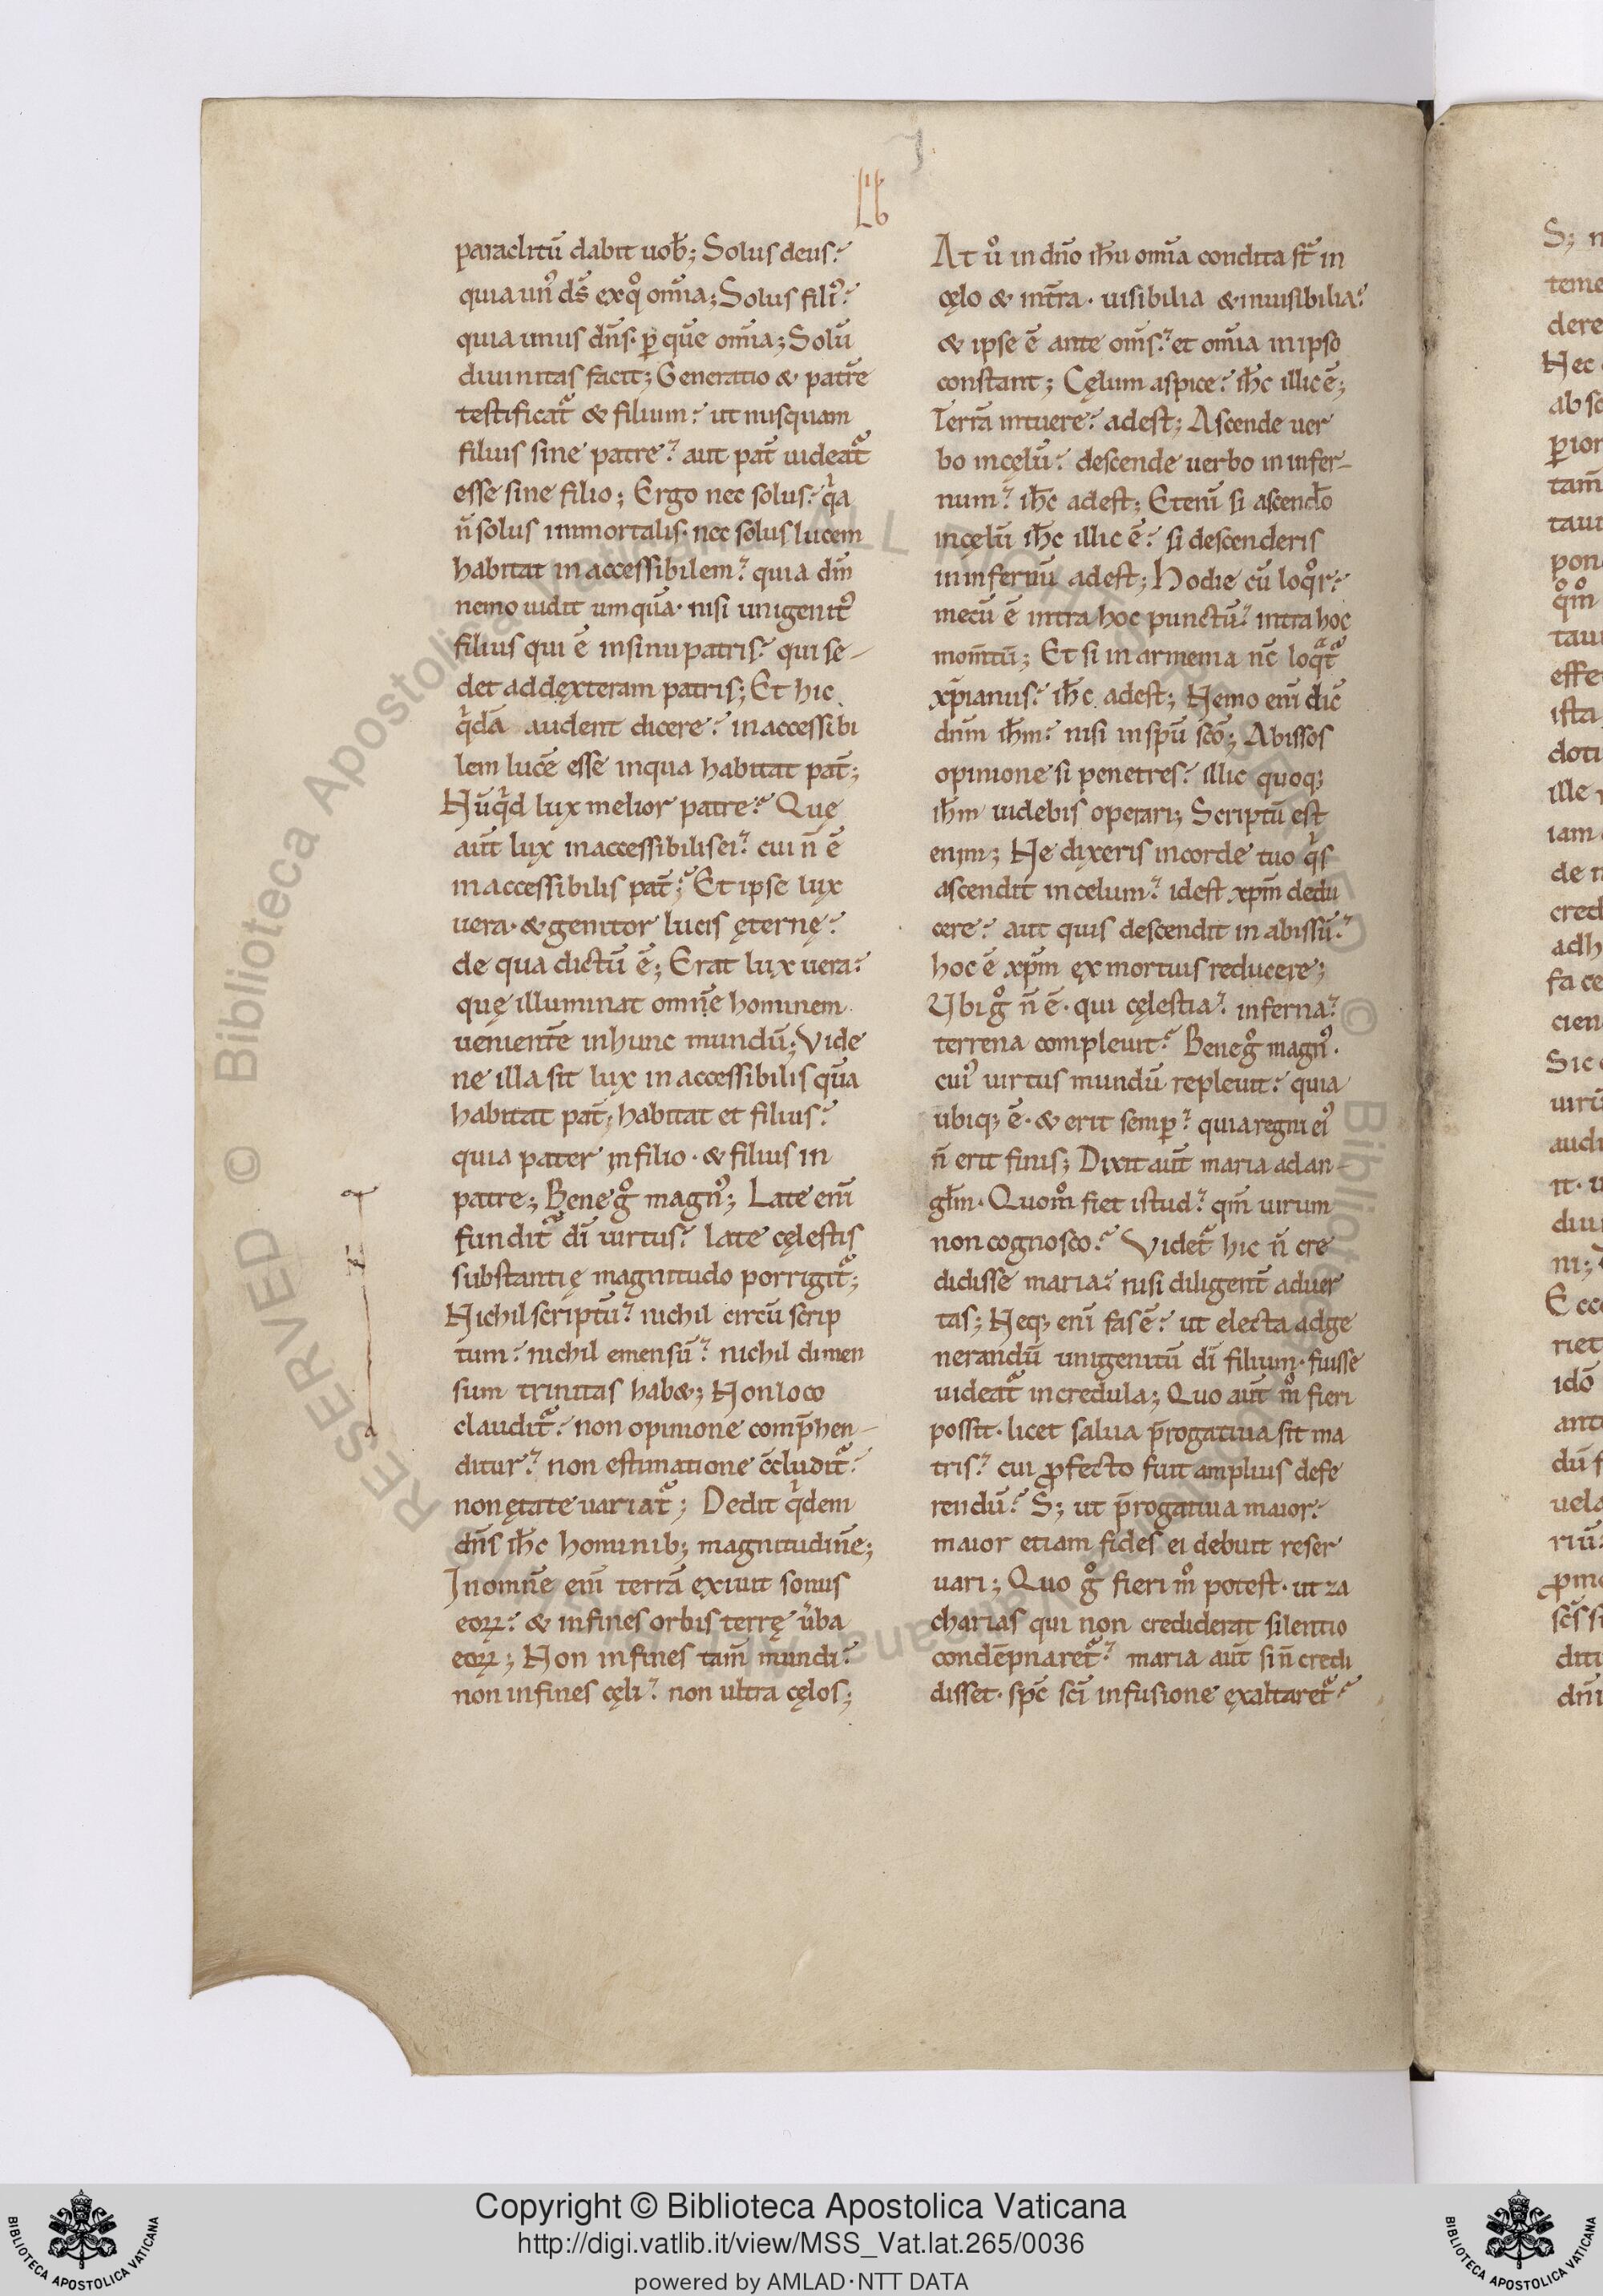 Lib
paraclitū dabit uob̄; Solus deus?
quia un᷒ ds̄ exqͦ om̄ia; Solus fili᷒?
quia unus dn̄s· ꝑ quē om̄ia; Solū
diuinitas facit; Generatio & patrē
testificat᷑ & filium? ut nusquam
filius sine patre? aut pat̄ uideat᷑
esse sine filio; Ergo nec solus? qͥa
n̄ solus immortalis· nec solus lucem
habitat inaccessibilem? quia dm̄
nemo uidit umquā· nisi unigenit᷒
filius qui ē insinu patris? qui se-
det addęxteram patris; Et hic
qͥdā audent dicere? inaccessibi
lem lucē esse inqua habitat pat̄;
Nūqͥd lux melior patre? Quę
aut̄ lux inaccessibilis ei? cui n̄ ē
inaccessibilis pat̄? Et ipse lux
uera· & genitor lucis ęternę?
de qua dictū ē; Erat lux uera?
quę illuminat omnē hominem
uenientē inhunc mundū; Vide
ne illa sit lux inaccessibilis quā
habitat pat̄; habitat et filius?
quia pater infilio· & filius in
patre; Bene gͦ magn᷒; Late enī
fundit᷑ dī uirtus? late cęlestis
substantię magnitudo porrigit᷑;
Nichil scriptū? nichil circū scrip
tum? nichil emensū? nichil dimen
sum trinitas hab&; Non loco
claudit᷑? non opinione comp̄hen-
ditur? non estimatione c̄cludit᷑?
non ętate uariat᷑; Dedit qͥdem
dn̄s ih̄c hominib; magnitudinē;
Inomnē enī terrā exiuit sonus
eoꝝ? & infines orbis terrę ůba
eoꝝ; Non infines tam̄ mundi?
non infines cęli? non ultra cęlos;
At uͦ in dn̄o ih̄u om̄ia condita st̄ in
cęlo & int̄ra· uisibilia & inuisibilia?
& ipse ē ante om̄s? et om̄ia inipso
constant; Cęlum aspice? ih̄c illic ē;
Terrā intuere? adest; Ascende uer
bo incęlū? descende uerbo in infer-
num? ih̄c adest; Etenī si ascendo
incęlū ih̄c illic ē? si descenderis
ininfernū adest; Hodie cū loqͦr?
mecū ē intra hoc punctū? intra hoc
mom̄tū; Et si in armenia nc̄ loqͣt᷑
xp̄ianus? ih̄c adest; Nemo enī dic̄
dn̄m ih̄m? nisi inspū scō; Abissos
opinione si penetres? illic quoq;
ih̄m uidebis operari; Scriptū est
enim; Ne dixeris incorde tuo qͥs
ascendit incelum? idest xp̄m dedu
cere? aut quis descendit in abissū?
hoc ē xp̄m ex mortuis reducere;
Vbi gͦ n̄ ē· qui cęlestia? inferna?
terrena compleuit? Bene gͦ magn᷒·
cui᷒ uirtus mundū repleuit? quia
ubiq; ē· & erit semꝑ? quia regni ei᷒
n̄ erit finis; Dixit aut̄ maria ad an-
gl̄m· Quom̊ fiet istud? qm̄ uirum
non cognosco? Videt᷑ hic n̄ cre
didisse maria? nisi diligent̄ aduer
tas; Neq; enī fas ē? ut electa adge
nerandū unigenitū dī filium· fuisse
uideat᷑ incredula; Quo aut̄ m̊ fieri
possit· licet salua p̄rogatiua sit ma
tris? cui ꝓfecto fuit amplius defe
rendū? S; ut p̄rogatiua maior?
maior etiam fides ei debuit reser
uari; Quo gͦ fieri m̊ potest· ut za
charias qui non crediderat silentio
condēpnaret᷑? maria aut̄ si n̄ credi
disset· spc̄ scī infusione exaltaret᷑?
Copyright © Biblioteca Apostolica Vaticana
http://digi.vatlib.it/view/MSS_Vat.lat.265/0036
powered by AMLAD·NTT DATA